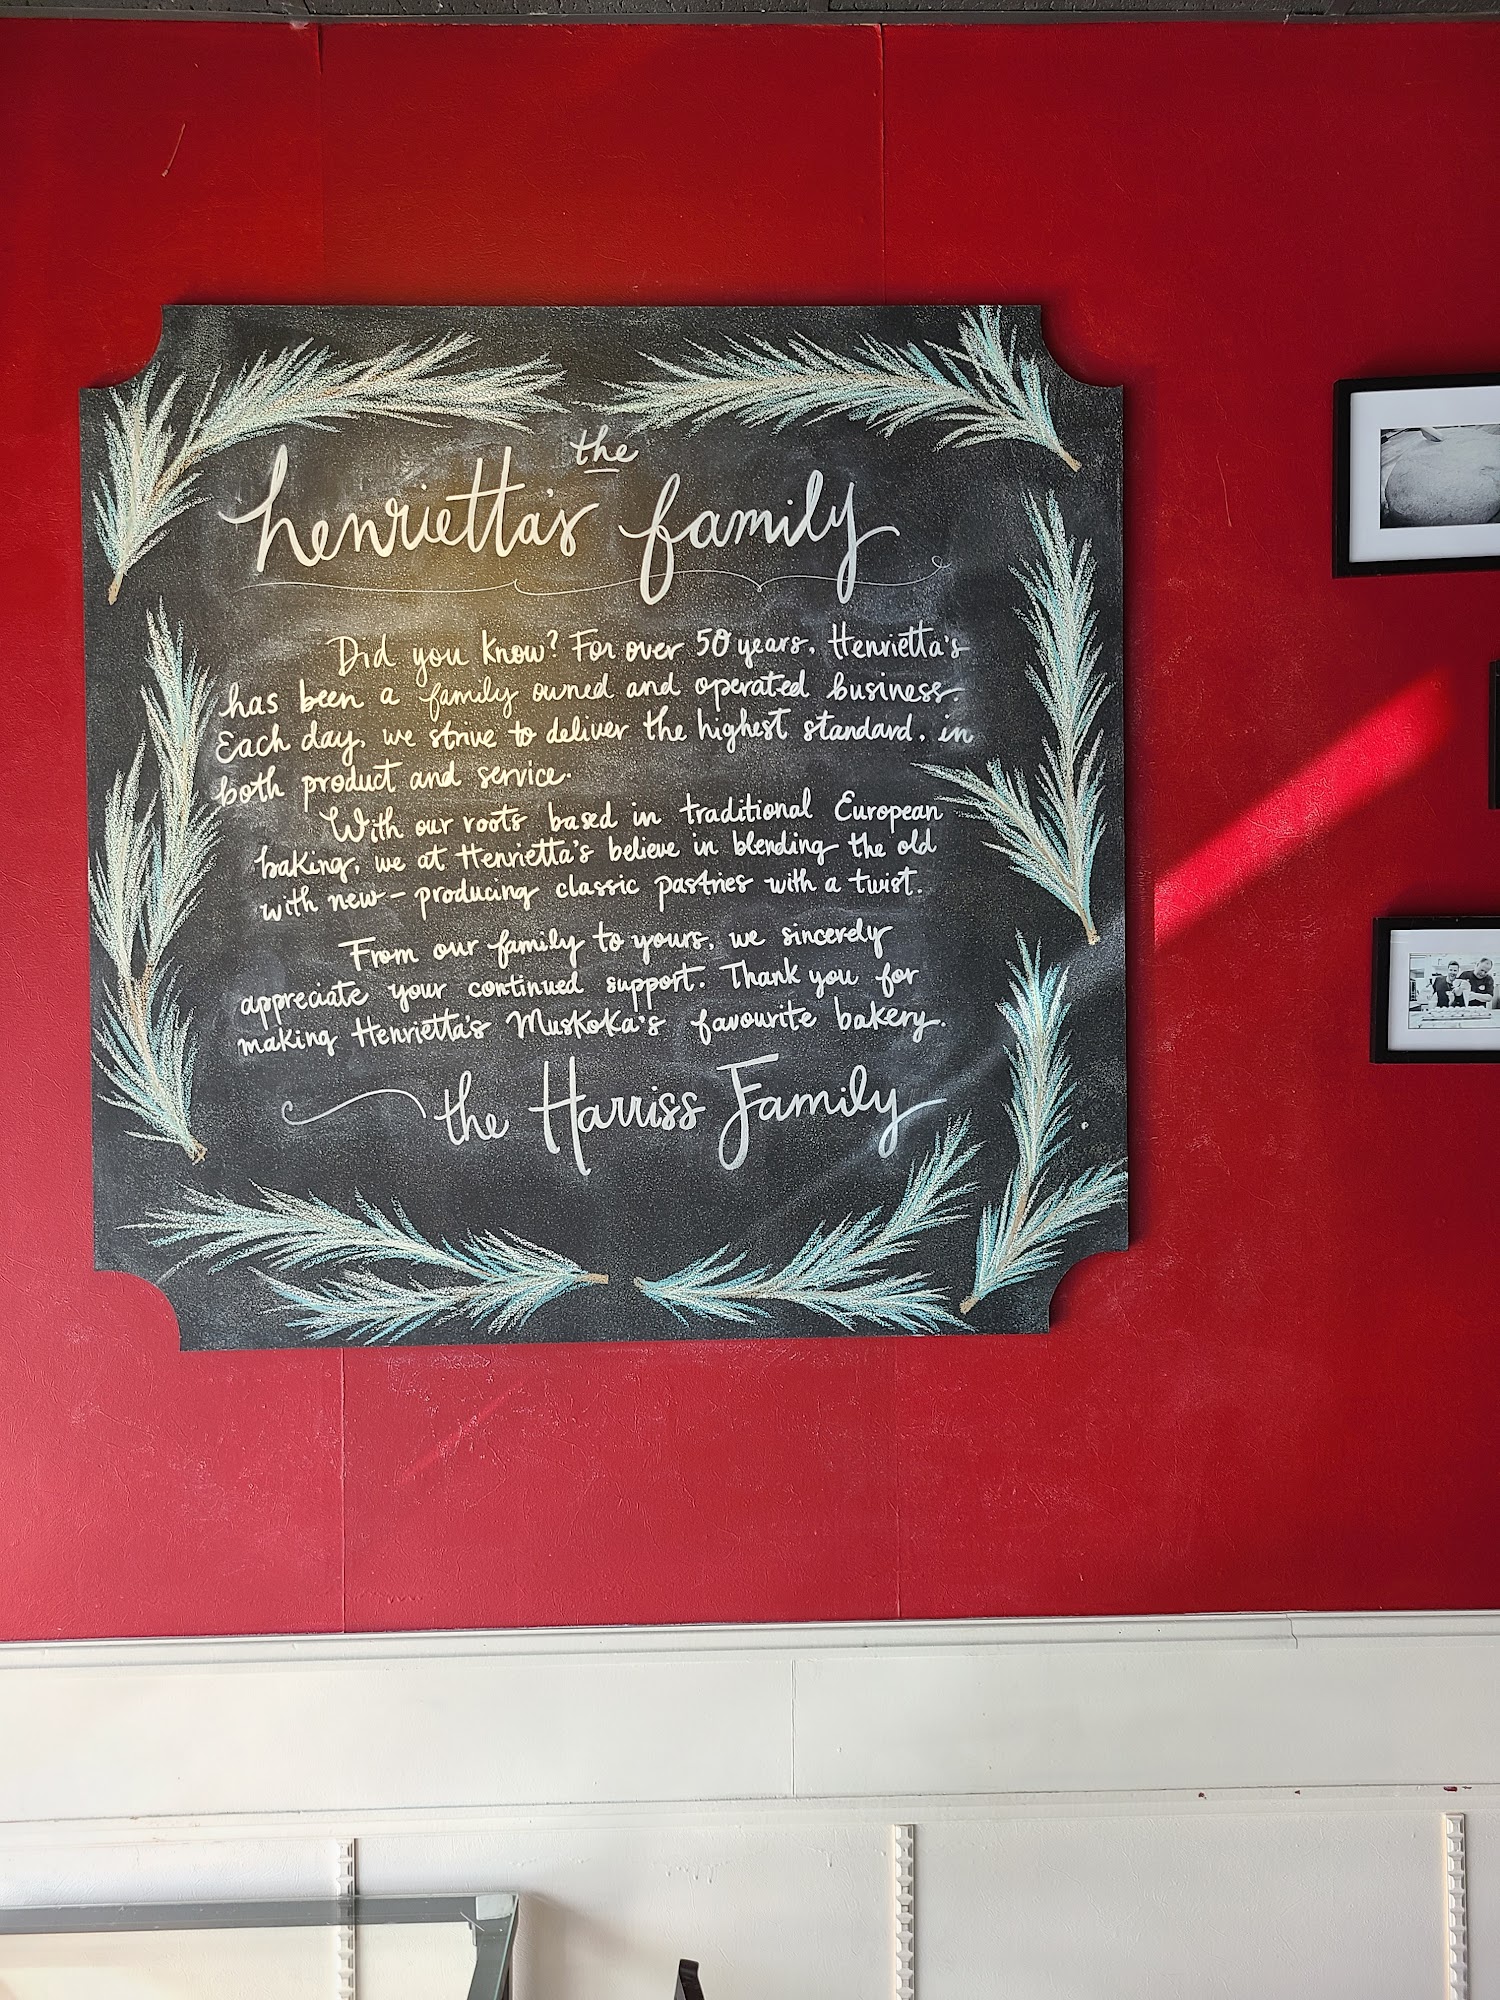 the
henrietta's family
Did you know? For over 50 years, Henrietta's
has been a family owned and operated business.
Each day, we strive to deliver the highest standard, in
both product and service.
With our roots based in traditional European
baking, we at Henrietta's believe in blending the old
with new - producing classic pastries with a twist.
From our family to yours, we sincerely
appreciate your continued support. Thank you for
making Henrietta's Muskoka's favourite bakery.
the Harriss Family